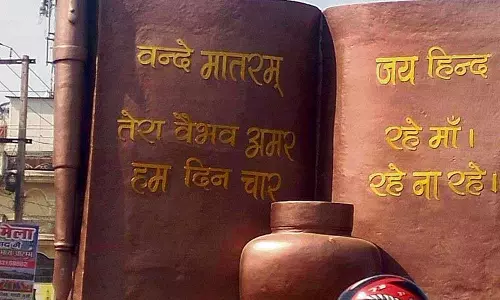 वन्दे मातरम्
जय हिन्द
तेरा वैभव अमर
रहे माँ।
हम दिन चार
रहे ना रहे।
मेला